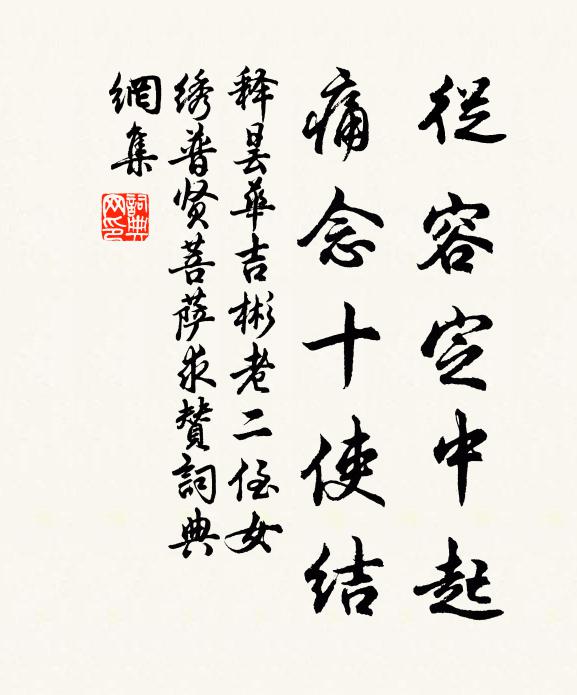 從容定中起
痛念十使结
释昙華吉彬老二侄女
绣普贤菩萨求贊詞典
網集
詞典网印